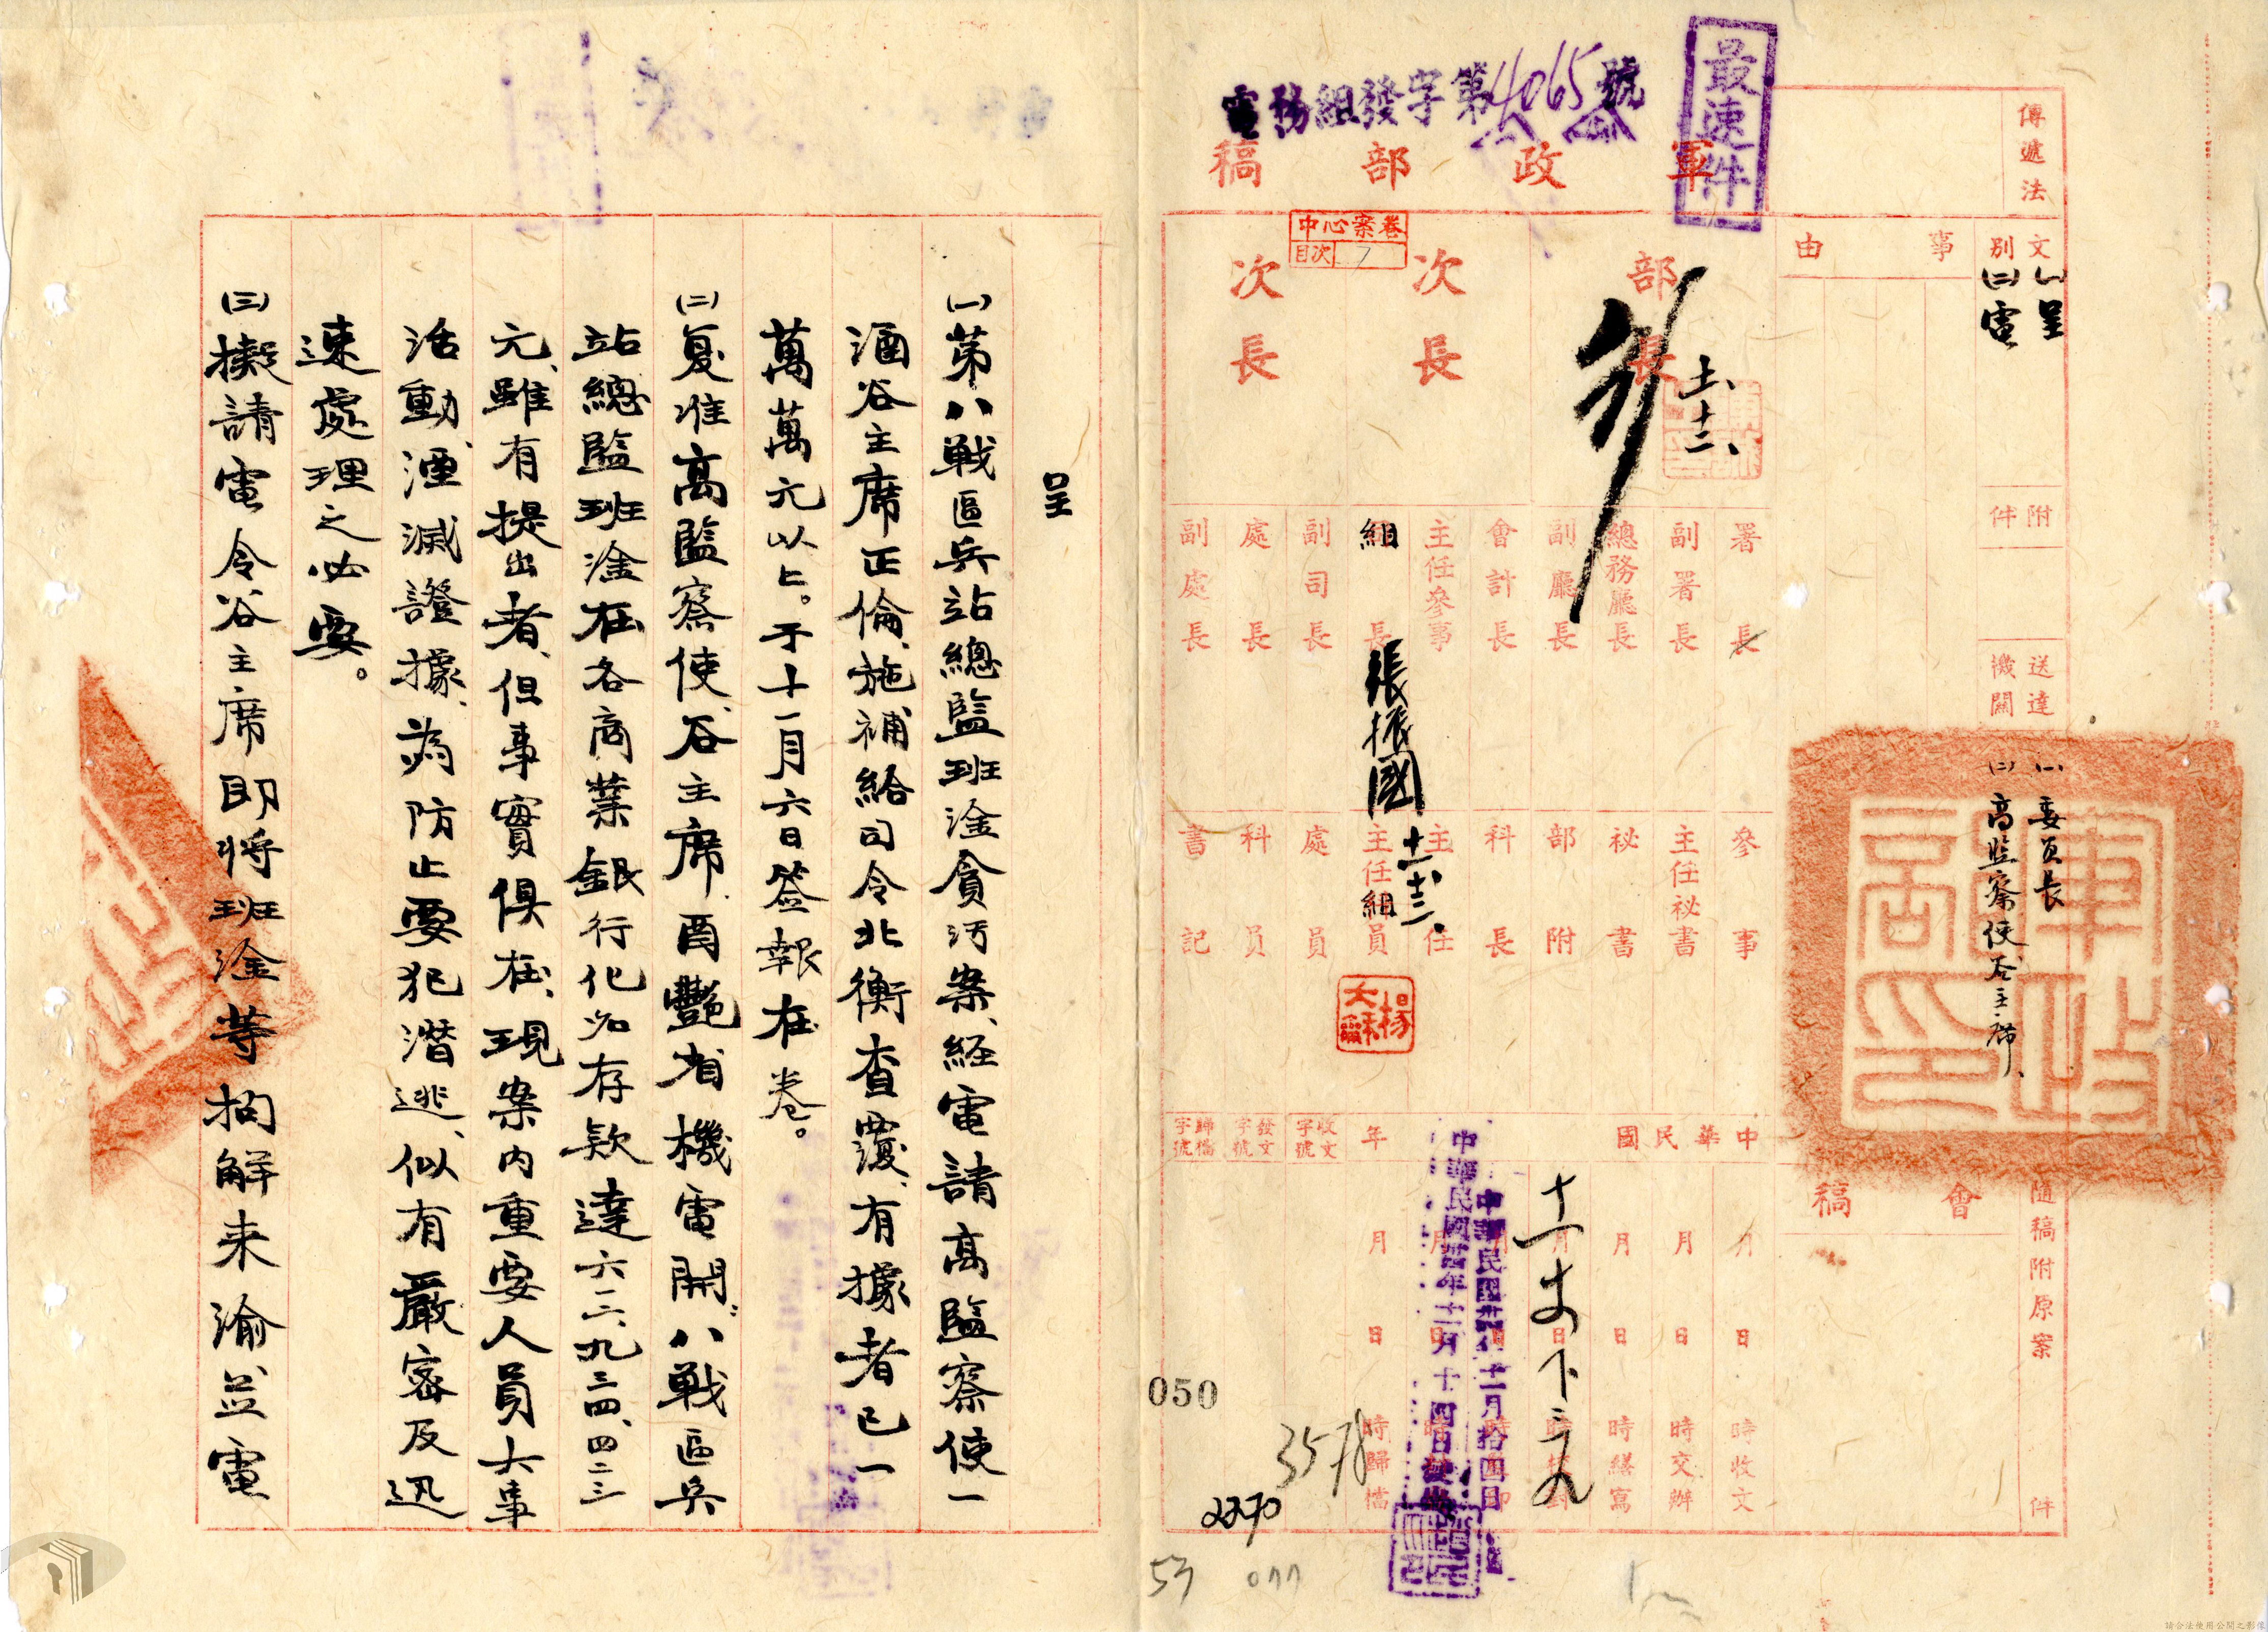 最速件
電務組發字第4065號
軍政部稿
傳遞法
文別
(一)呈
(二)電
事由
附件
送達機關
(一)委員長
(二)高監察使谷主席、
隨稿附原案
件
會稿
部長
次長
次長
中心案卷
目次 7
十一、十二、
署長
副署長
總務廳長
副廳長
會計長
主任參事
組長
張振國
十一、十二、
副司長
處長
副處長
參事
主任秘書
秘書
部附
科長
主任
主任組員
處員
科員
書記
軍政部印
中華民國
年
月 日 時收文
月 日 時交辦
月 日 時繕寫
月 日 時校對
月 日 時蓋印
月 日 時發出
月 日 時歸檔
收文字號
發文字號
歸檔字號
中華民國卅四年十一月拾四日
中華民國卅四年十一月十四日
050
3578
2270
53
077
呈
(一)第八戰區兵站總監班淦貪污案、經電請高監察使一
涵谷主席正倫、施補給司令北衡查覆、有據者已一
萬萬元以上。于十一月六日簽報在卷。
(二)复准高監察使、谷主席、酉豔省機電開:八戰區兵
站總監班淦在各商業銀行化名存款達六二、九三四、四二三
元、雖有提出者、但事實俱在、現案内重要人員大事
活動、湮滅證據、為防止要犯潛逃、似有嚴密及迅
速處理之必要。
(三)擬請電令谷主席即將班淦等拘解来渝並電
請合法使用公開之影像